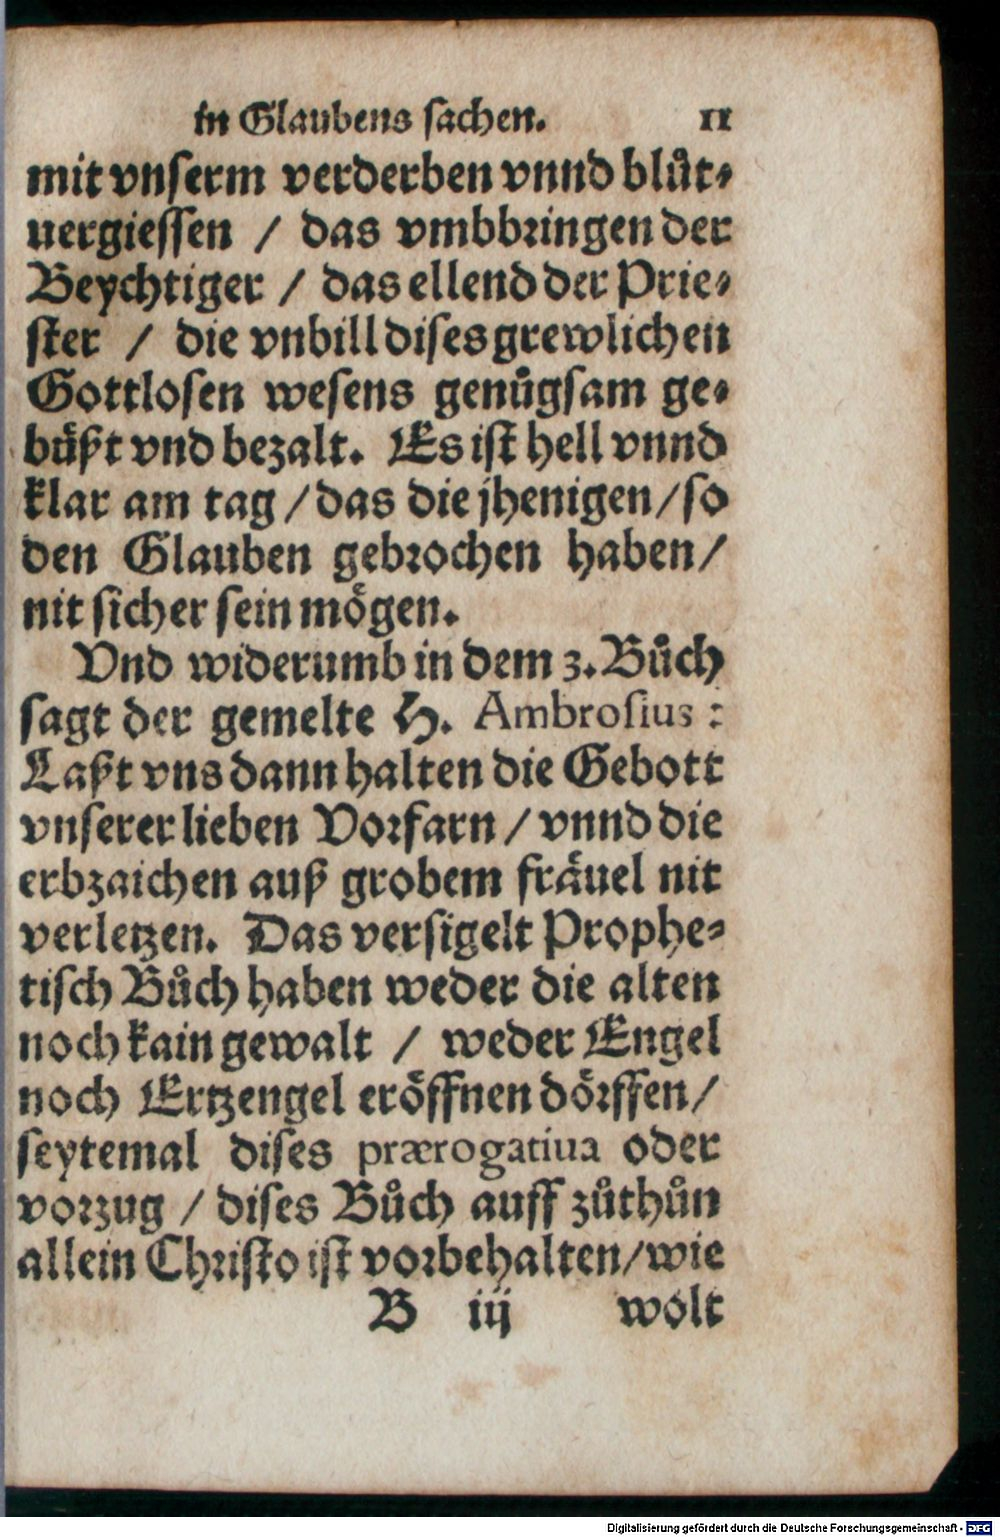 in Glaubens sachen. 11
mit vnserm verderben vnnd blůt⸗
uergiessen / das vmbbringen der
Beychtiger / das ellend der Prie⸗
ster / die vnbill dises grewlichen
Gottlosen wesens genůgsam ge⸗
bůßt vnd bezalt. Es ist hell vnnd
klar am tag / das die jhenigen / so
den Glauben gebrochen haben /
nit sicher sein mögen.
Vnd widerumb in dem 3. Bůch
sagt der gemelte H. Ambrosius :
Laßt vns dann halten die Gebott
vnserer lieben Vorfarn / vnnd die
erbzaichen auß grobem fräuel nit
verletzen. Das versigelt Prophe⸗
tisch Bůch haben weder die alten
noch kain gewalt / weder Engel
noch Ertzengel eröffnen dörffen /
seytemal dises prærogatiua oder
vorzug / dises Bůch auff zůthůn
allein Christo ist vorbehalten / wie
B iij wolt
Digitalisierung gefördert durch die Deutsche Forschungsgemeinschaft - DFG